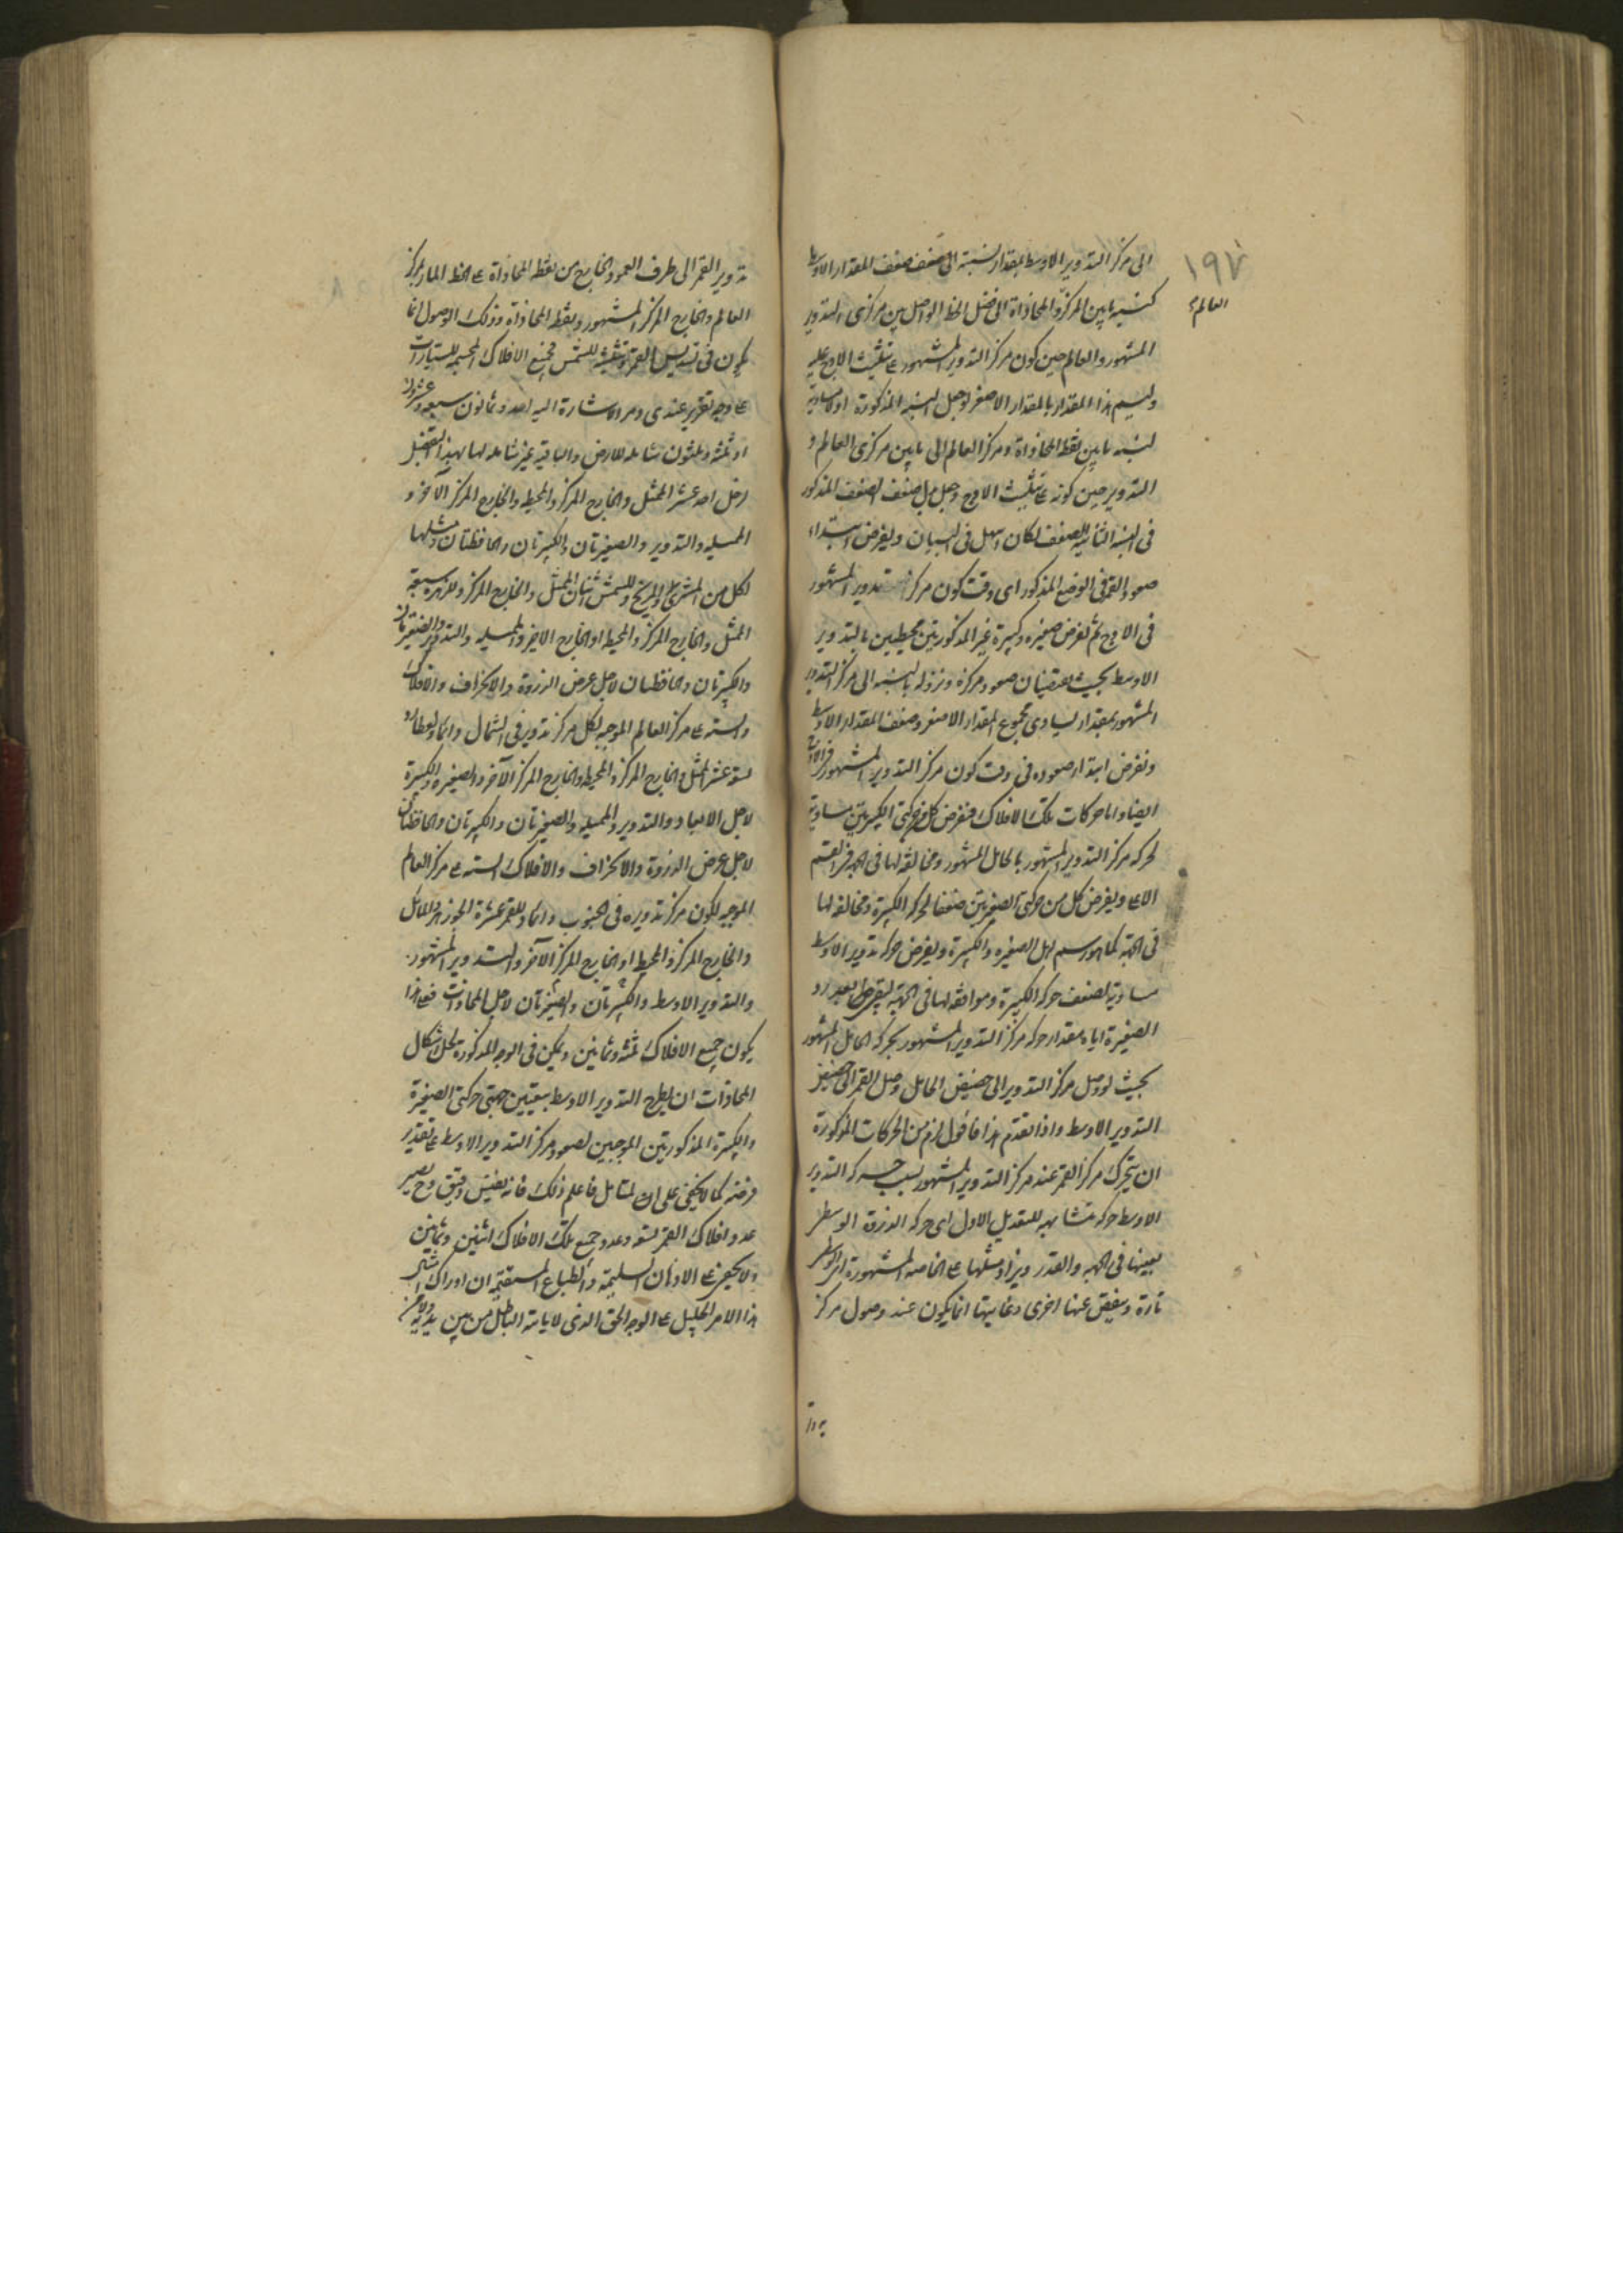 ١٩٧
العالم
الى مركز التدوير الاوسط بمقدار نسبته الى ضعف ضعف المقدار الاوسط
كنسبة ما بين المركز والمحاذاة الى فضل الخط الواصل بين مركزى التدوير
المشهور والعالم حين كون مركز التدوير المشهور ے تثليث الاوج عليه
وليسم هذا المقدار بالمقدار الاصغر ولو جعل النسبة المذكورة اولا مساوية
لنسبة ما بين نقطة المحاذاة ومركز العالم الى ما بين مركزى العالم و
التدوير حين كونه ے تثليث الاوج وجعل بدل ضعف الضعف المذكور
فى النسبة الثانية الضعف لكان اسهل فى البيان ويفرض ابتداء
صعود القمر فى الوضع المذكور اى وقت كون مركز تدوير المشهور
فى الاوج ثم نفرض صغيره وكبيرة غير المذكورتين محيطين بالتدوير
الاوسط بحيث يقتضيان صعود مركزه ونزوله بالنسبة الى مركز التدوير
المشهور بمقدار يساوى مجموع المقدار الاصغر وضعف المقدار الاوسط
ونفرض ابتداء صعوده فى وقت كون مركز التدوير المشهور فى الاوج
ايضا واما حركات تلك الافلاك فنفرض كل من حركتى الكبيرتين مساوية
لحركة مركز التدوير المشهور بالحامل المشهور ومخالفة لها فى الجهة فى القسم
الاعلى ويفرض كل من حركتى الصغيرتين ضعفا لحركة الكبيرة ومخالفة لها
فى الجهة كما هو رسم اهل الصغيره والكبيرة ويفرض حركة تدوير الاوسط
مساوية لضعف حركة الكبيرة وموافقة لها فى الجهة ليبقى بعد رد
الصغيرة اياه مقدار حركة مركز التدوير المشهور بحركة الحامل المشهور
بحيث لو وصل مركز التدوير الى حضيض الحامل وصل القمر الى حضيض
التدوير الاوسط واذا تقدم هذا فاقول لزم من الحركات المذكورة
ان يتحرك مركز القمر عند مركز التدوير المشهور بسبب حركة التدوير
الاوسط حركة متشابهة للتعديل الاول اى حركة الذروة الوسطى
بعينها فى الجهة والقدر ويزاد مثلها ے الخاصة المشهورة اى الوسطى
تارة وينقص عنها اخرى وغايتها انما يكون عند وصول مركز
تدوير القمر الى طرف العمود الخارج من نقطة المحاذاة ے الخط المار بمركز
العالم والخارج المركز المشهور ونقطة المحاذاة وذلك الوصول انما
يكون فى تسديس القمر وتثليثه للشمس فجميع الافلاك المجسمة للسيارات
ے وجه تقرر عندى ومر الاشارة اليه احد وثمانون سبعة وعشرون
او ثلثة وثلثون شاملة للارض والباقية غير شاملة لها بهذا التفصيل
لزحل احد عشر الممثل والخارج المركز والمحيط والخارج المركز الآخر و
المميله والتدوير والصغيرتان والكبيرتان والحافظتان ومثلها
لكل من المشترى والمريخ وللشمس اثنان الممثل والخارج المركز وللزهرة سبعة
الممثل والخارج المركز والمحيط او الخارج الاخير والمميله والتدوير والصغيرتان
والكبيرتان والحافظتان لاجل عرض الذروة والانحراف والافلاك
الستة ے مركز العالم الموجبة لكل مركز تدوير فى الشمال دائما ولعطارد
ستة عشر الممثل والخارج المركز والمحيط والخارج المركز الآخر والصغيره والكبيرة
لاجل الابعاد والتدوير والمميله والصغيرتان والكبيرتان والحافظتان
لاجل عرض الذروة والانحراف والافلاك الستة ے مركز العالم
الموجبة لكون مركز تدويره فى الجنوب دائما وللقمر عشرة الجوزهر والمائل
والخارج المركز والمحيط او الخارج المركز الآخر والتدوير المشهور
والتدوير الاوسط والكبيرتان والصغيرتان لاجل المحاذات فعلى هذا
يكون جميع الافلاك ثلثة وثمانين ويمكن فى الوجه المذكور لحل اشكال
المحاذات ان يطرح التدوير الاوسط بتعيين جهتى حركتى الصغيرة
والكبيرة المذكورتين الموجبين لصعود مركز التدوير الاوسط ے تقدير
فرضه كما لا يخفى على المتامل فاعلم ذلك فانه نفيس دقيق وح يصير
عدد افلاك القمر تسعة وعدد جميع تلك الافلاك اثنين وثمانين
ولا يخفى ے الاذهان السليمة والطباع المستقيمة ان ادراك امثال
هذا الامر الجليل ے الوجه الحق الذى لا ياتيه الباطل من بين يديه ولا من